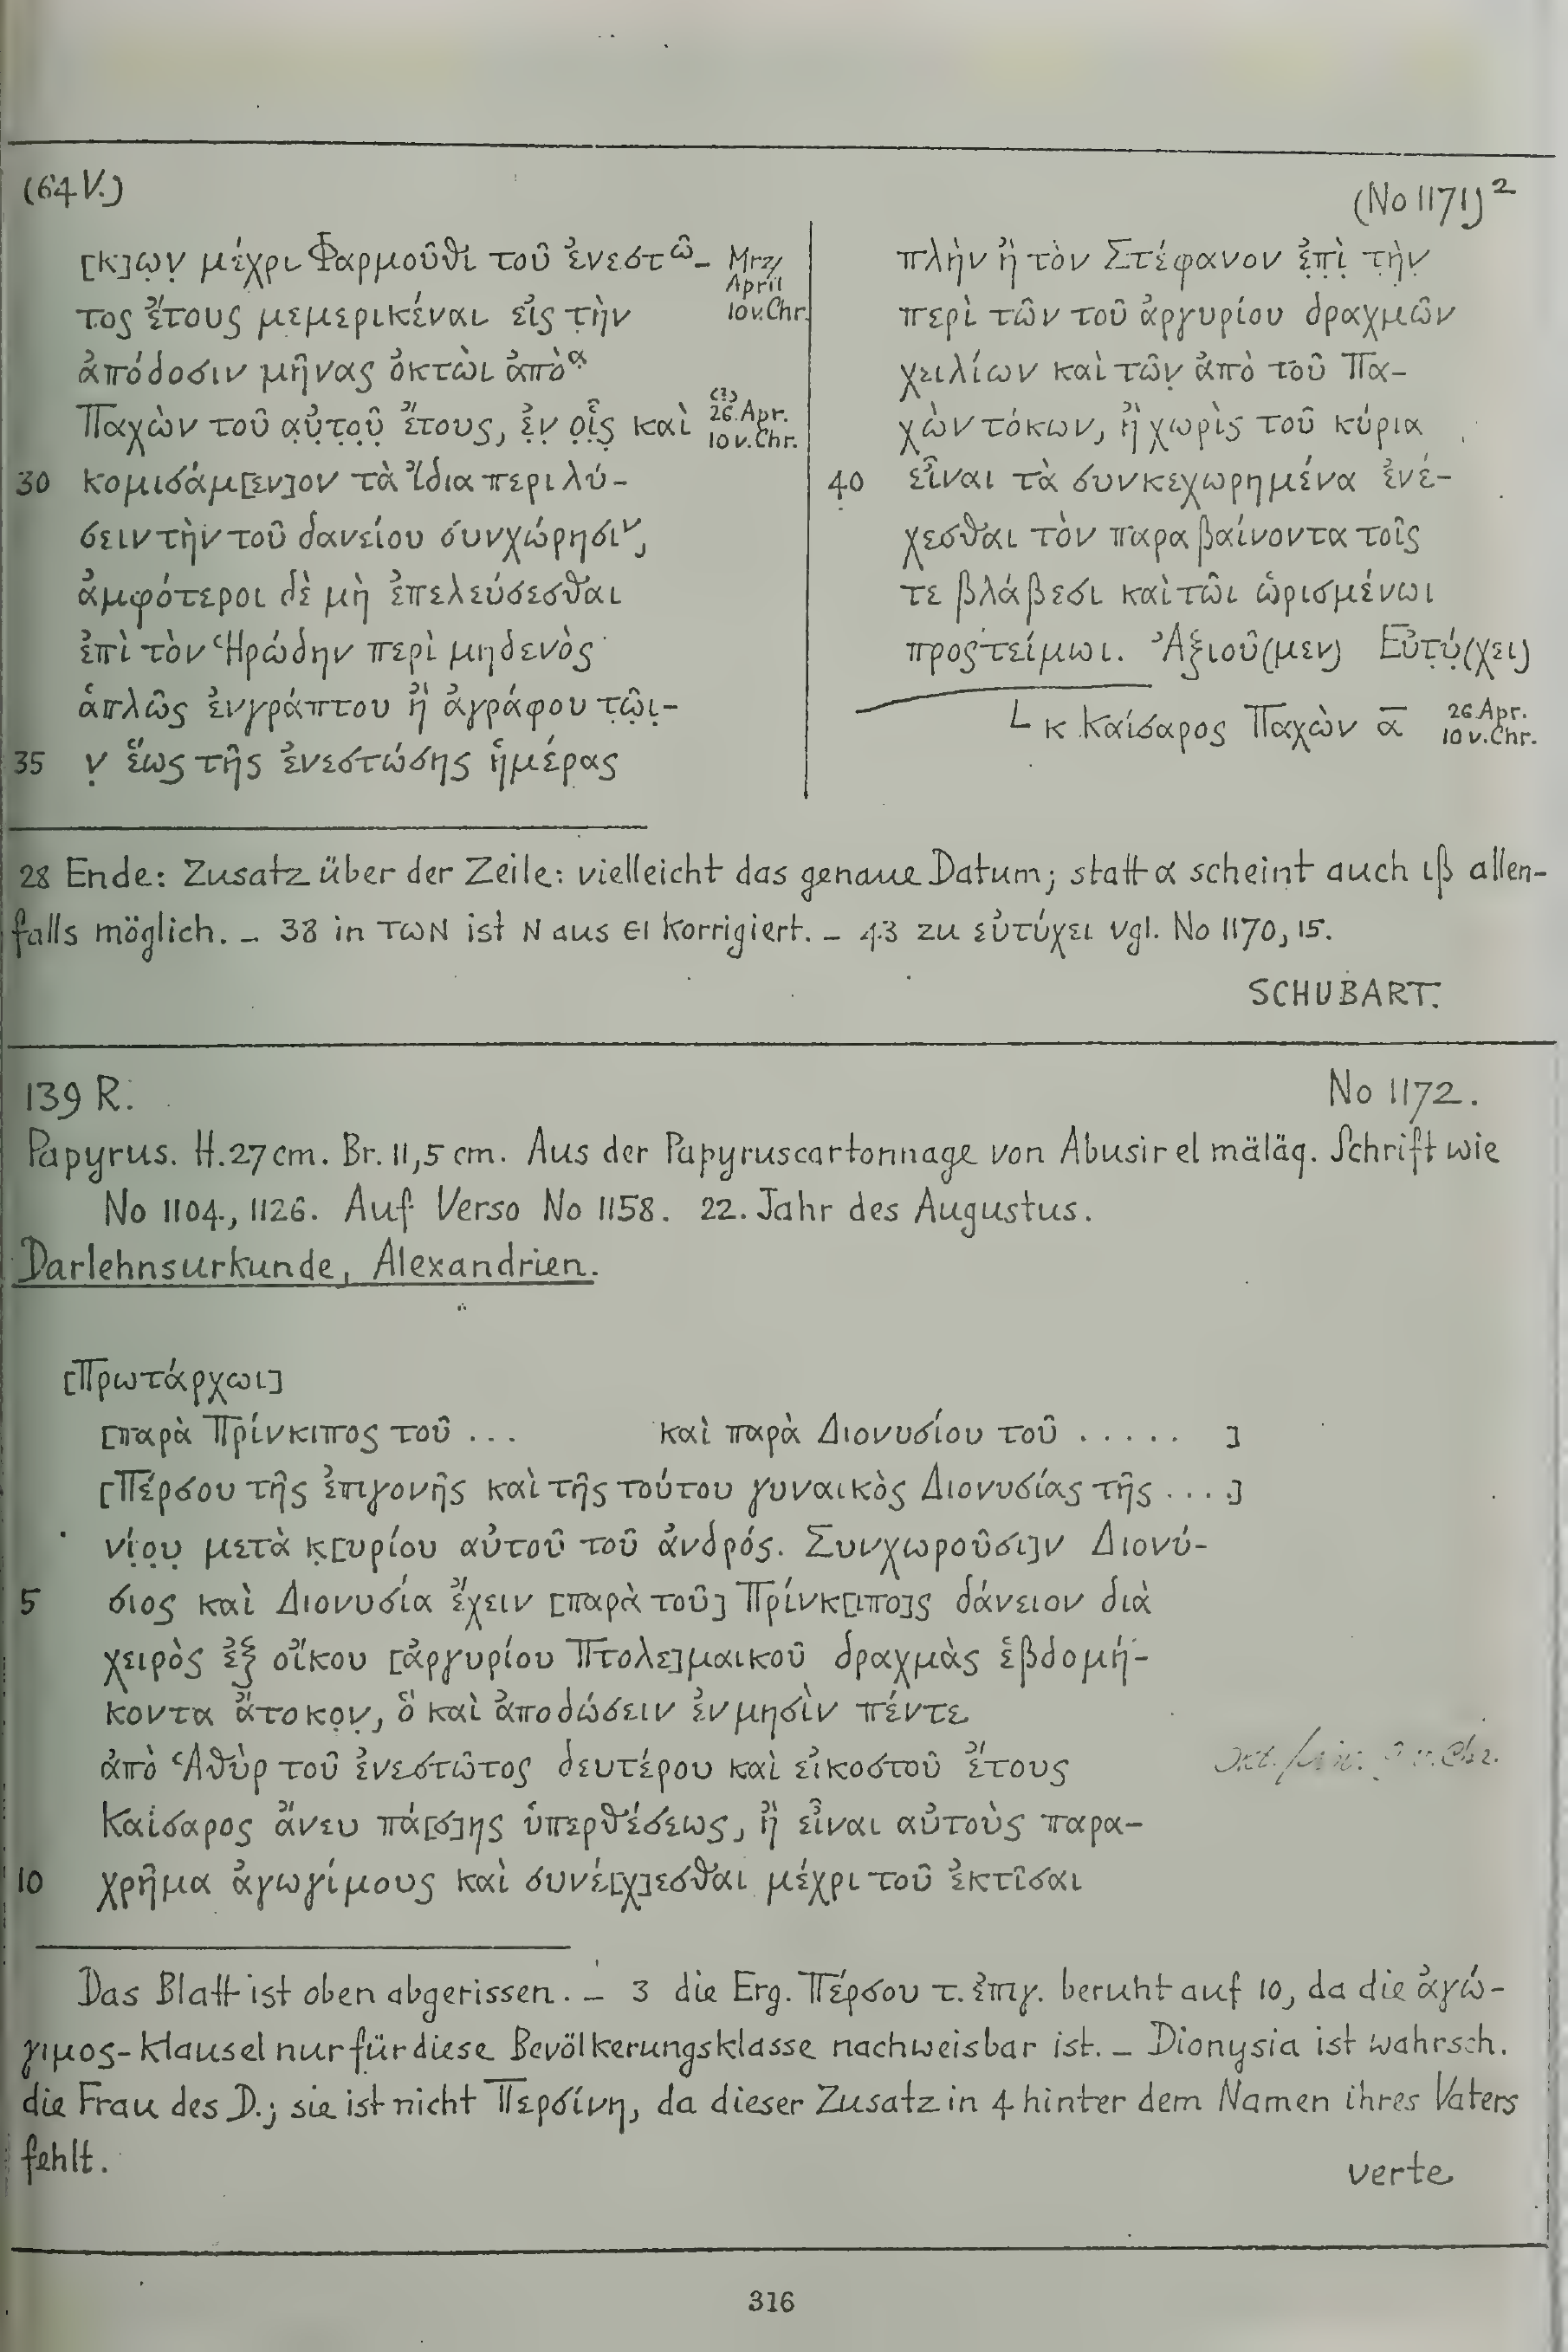 (64 V.)
(No 1171)²
[κ]ω̣ν̣ μέχρι Φαρμοῦθι τοῦ ἐνεστῶ-
Mrz/
April
10 v. Chr.
τος ἔτους μεμερικέναι εἰς τ̣ὴν
ἀπόδοσιν μῆνας ὀκτὼι ἀπὸ α
Παχὼν τοῦ α̣ὐ̣τ̣ο̣ῦ̣ ἔτους, ἐ̣ν̣ ο̣ἷ̣ς̣ καὶ
(?)
26. Apr.
10 v. Chr.
30 κομισάμ[εν]ον τὰ ἴδια περιλύ-
σειν τὴν τοῦ δανείου συνχώρησιν,
ἀμφότεροι δὲ μὴ ἐπελεύσεσθαι
ἐπὶ τὸν Ἡρώδην περὶ μηδενὸς
ἁπλῶς ἐνγράπτου ἢ ἀγράφου τ̣ῶ̣ι̣-
35 ν̣ ἕως τῆς ἐνεστώσης ἡμέρας
πλὴν ἢ τὸν Στέφανον ἐ̣π̣ὶ̣ τ̣ὴ̣ν̣
περὶ τῶν τοῦ ἀργυρίου δραχμῶν
χειλίων καὶ τῶν̣ ἀπὸ τοῦ Πα-
χὼν τόκων, ἢ χωρὶς τοῦ κύρια
40 εἶναι τὰ συνκεχωρημένα ἐνέ-
χεσθαι τὸν παραβαίνοντα τοῖς
τε βλάβεσι καὶ τῶι ὡρισμένωι
προστείμωι. Ἀξιοῦ(μεν) Εὐτ̣ύ̣(χει)
└ κ Καίσαρος Παχὼν α̅
26 Apr.
10 v. Chr.
28 Ende: Zusatz über der Zeile: vielleicht das genaue Datum; statt α scheint auch ιβ allen-
falls möglich. – 38 in τωΝ ist Ν aus ЄΙ korrigiert. – 43 zu εὐτύχει vgl. No 1170, 15.
SCHUBART.
139 R.
No 1172.
Papyrus. H. 27 cm. Br. 11,5 cm. Aus der Papyruscartonnage von Abusir el mäläq. Schrift wie
No 1104, 1126. Auf Verso No 1158. 22. Jahr des Augustus.
Darlehnsurkunde, Alexandrien.
[Πρωτάρχωι]
[παρὰ Πρίνκιπος τοῦ ... καὶ παρὰ Διονυσίου τοῦ ..... ]
[Πέρσου τῆς ἐπιγονῆς καὶ τῆς τούτου γυναικὸς Διονυσίας τῆς ....]
νί̣ο̣υ̣ μετὰ κ̣[υρίου αὐτοῦ τοῦ ἀνδρός. Συνχωροῦσι]ν Διονύ-
5 σιος καὶ Διονυσία ἔχειν [παρὰ τοῦ] Πρίνκ[ιπο]ς δάνειον διὰ
χειρὸς ἐξ οἴκου [ἀργυρίου Πτολε]μαικοῦ δραχμὰς ἑβδομή-
κοντα ἄτοκο̣ν̣, ὃ καὶ ἀποδώσειν ἐν μησὶν πέντε
ἀπὸ Ἁθὺρ τοῦ ἐνεστῶτος δευτέρου καὶ εἰκοστοῦ ἔτους
Καίσαρος ἄνευ πά[σ]ης ὑπερθέσεως, ἢ εἶναι αὐτοὺς παρα-
10 χρῆμα ἀγωγίμους καὶ συνέ[χ]εσθαι μέχρι τοῦ ἐκτῖσαι
Das Blatt ist oben abgerissen. – 3 die Erg. Πέρσου τ. ἐπιγ. beruht auf 10, da die ἀγώ-
γιμος-Klausel nur für diese Bevölkerungsklasse nachweisbar ist. – Dionysia ist wahrsch.
die Frau des D.; sie ist nicht Περσίνη, da dieser Zusatz in 4 hinter dem Namen ihres Vaters
fehlt.
verte
316